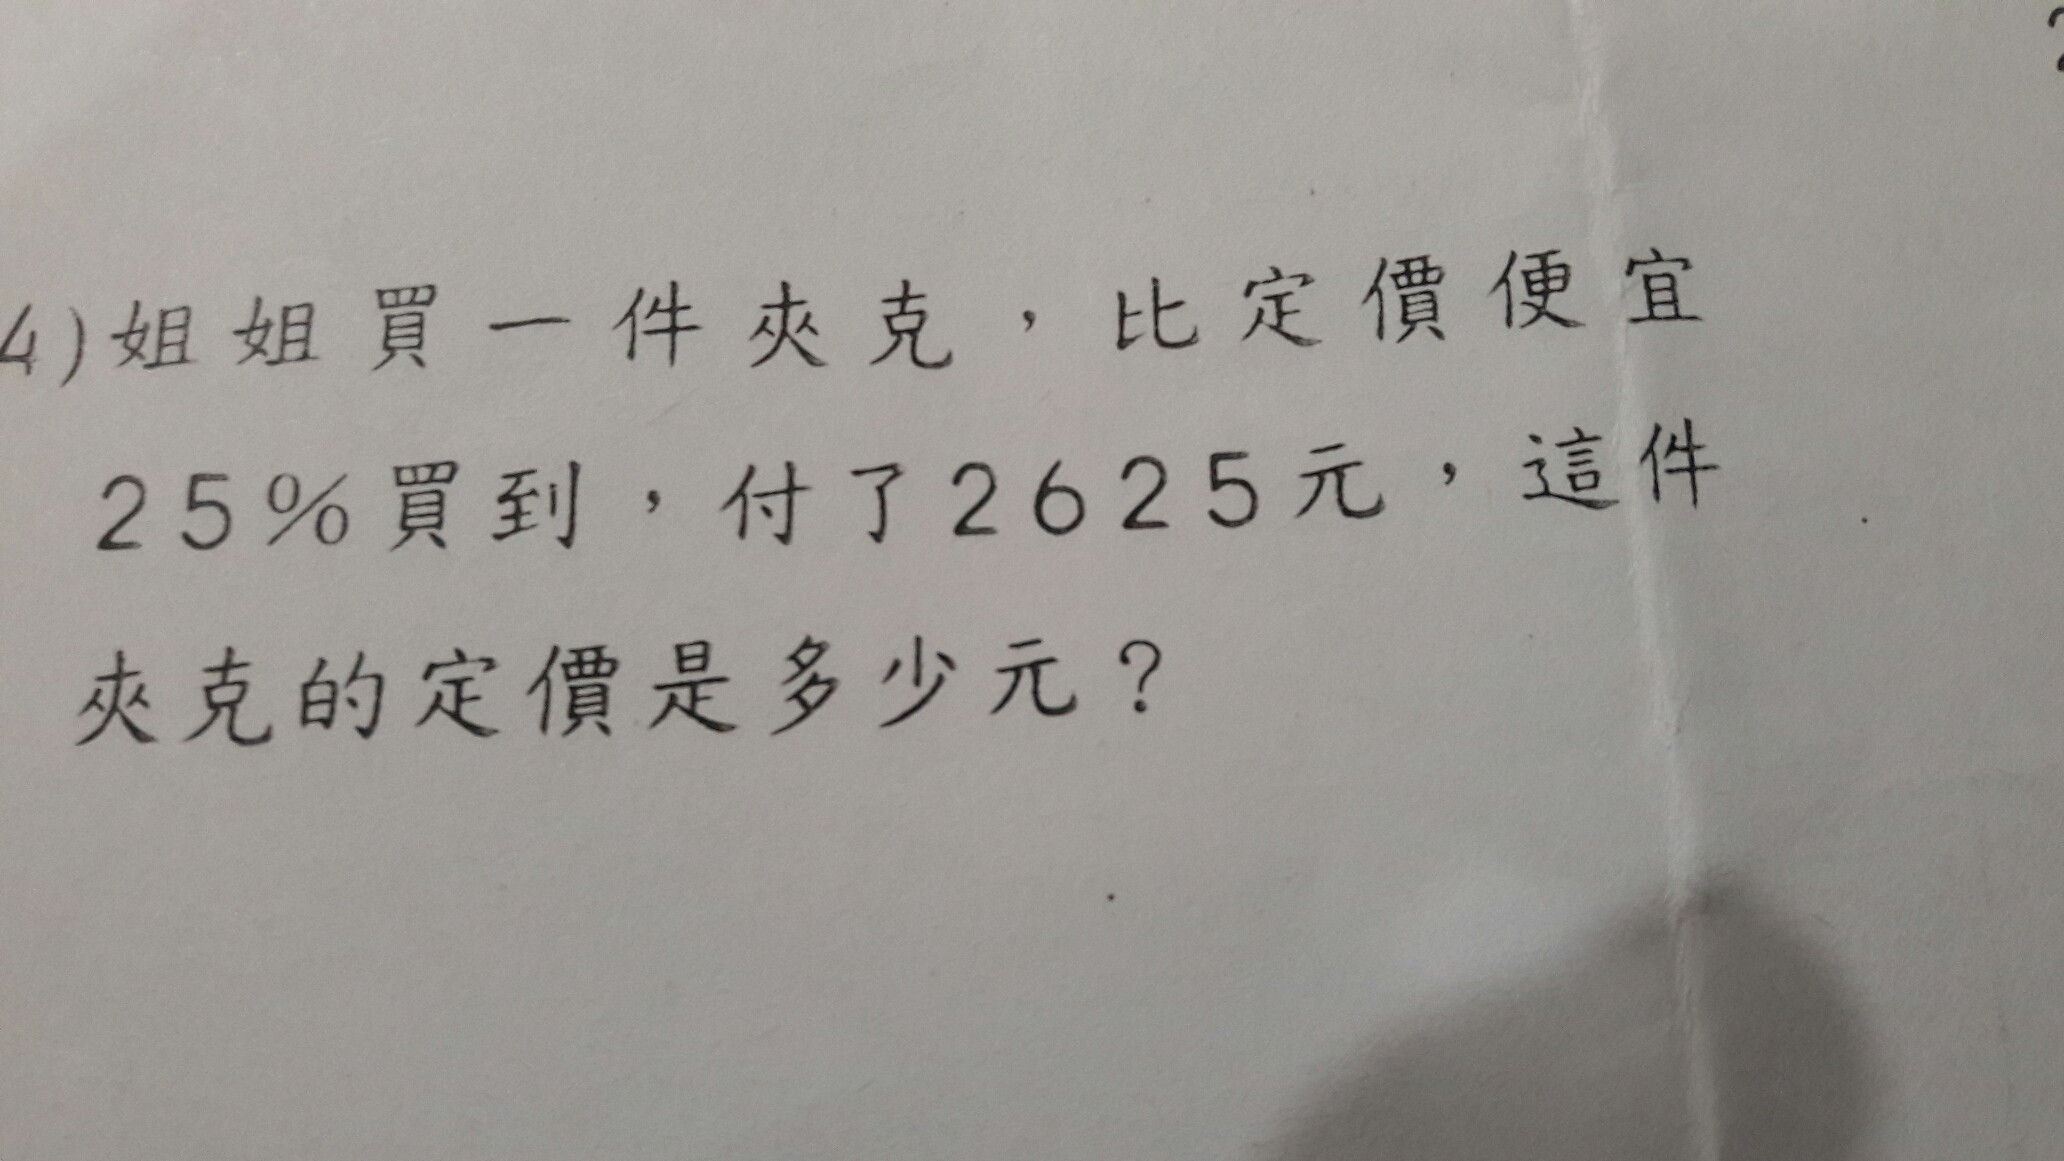 4)姐姐買一件夾克，比定價便宜
25%買到，付了2625元，這件
夾克的定價是多少元？